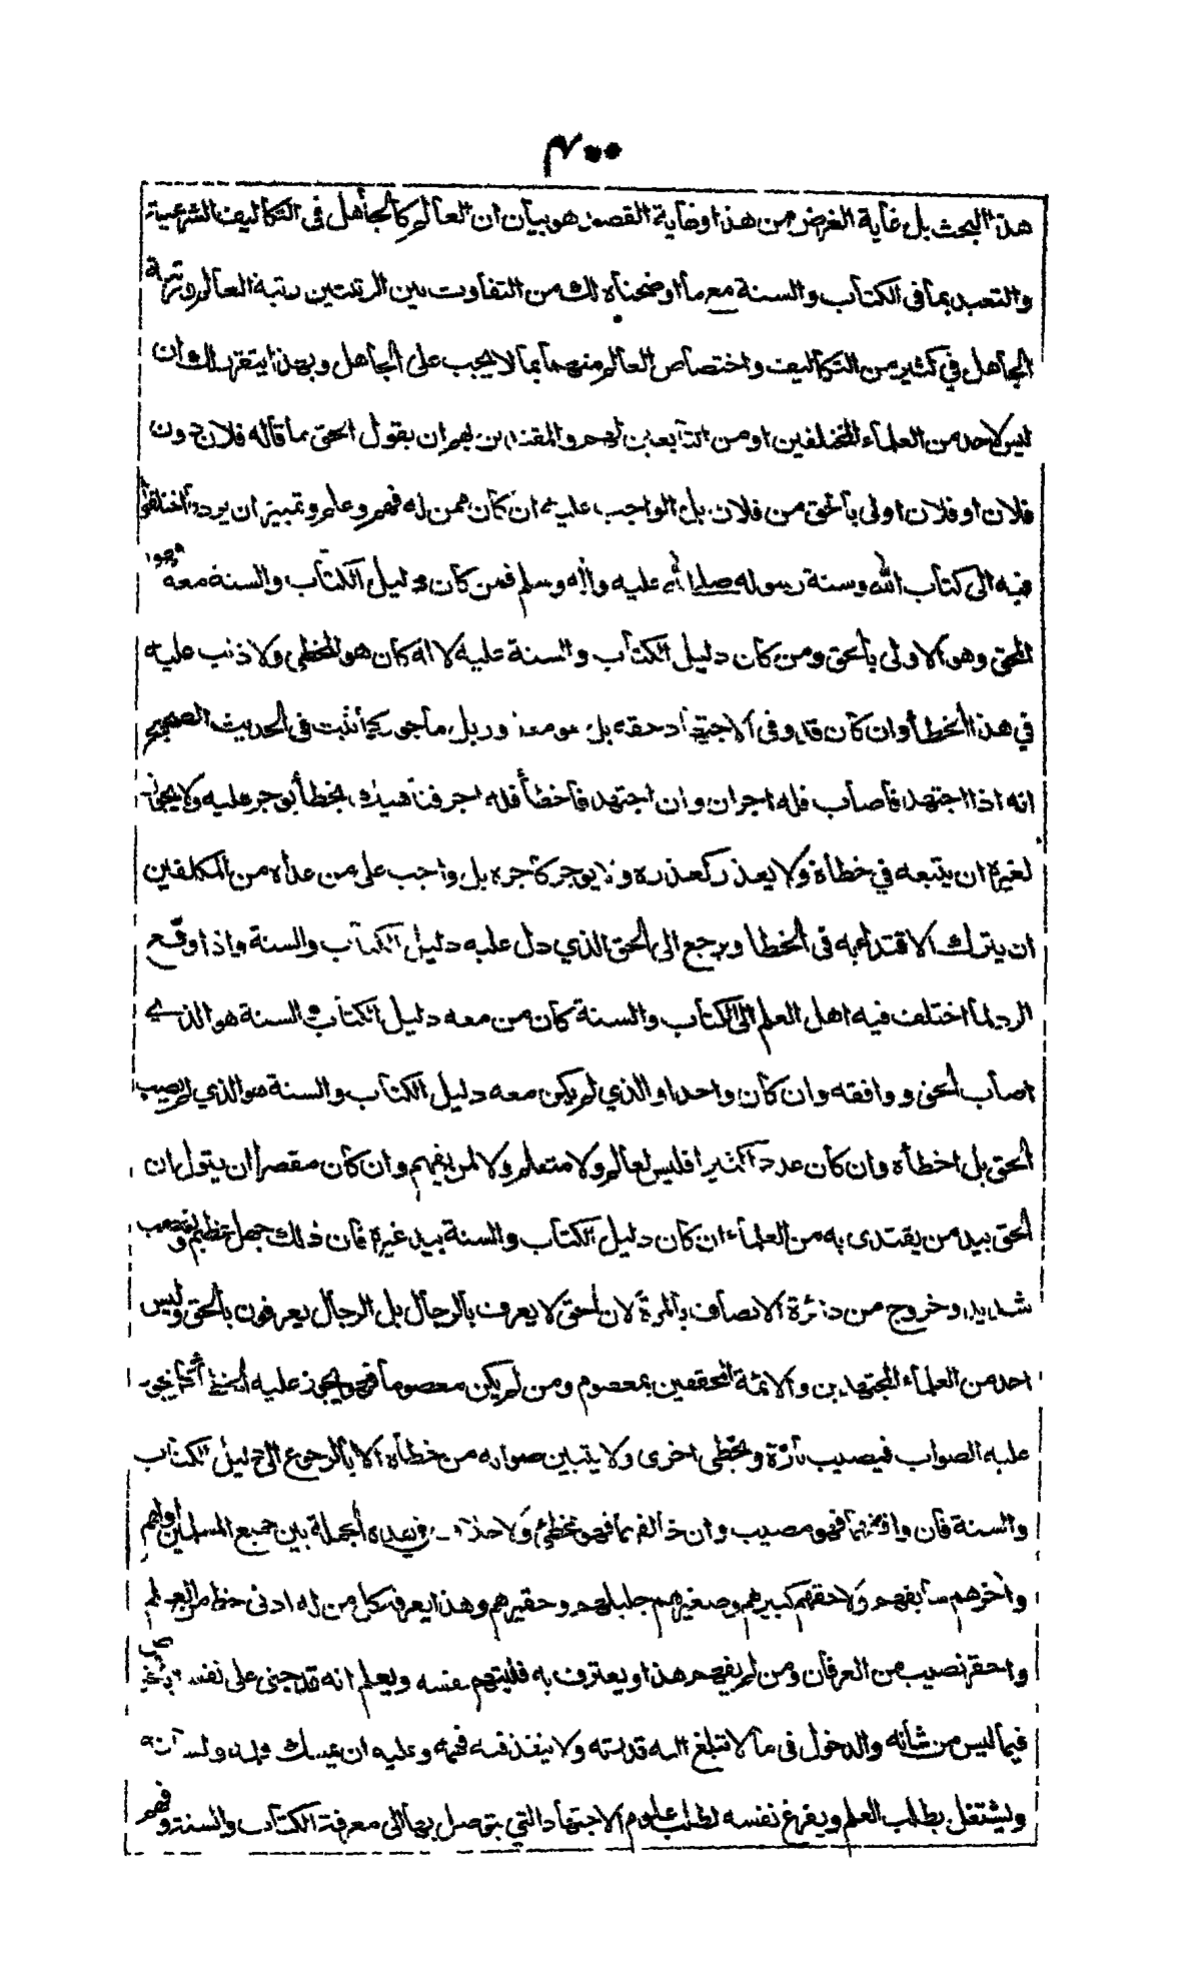 ٣٠٠
هذا البحث بل غاية الغرض من هذا وغاية القصود هو بيان ان العالم كالجاهل في التكاليف الشرعية
والتعبد بما في الكتاب والسنة مع ما اوضحناه لك من التفاوت بين الرتبتين رتبة العالم ورتبة
الجاهل في كثير من التكاليف واختصاص العالم منهما بما لا يجب على الجاهل وبهذا يتقرر لك ان
ليس لاحد من العلماء المختلفين او من التابعين لهم والمقتدين بهم ان يقول الحق ما قاله فلان دون
فلان او فلان اولى بالحق من فلان بل الواجب عليه ان كان ممن له فهم وعلم وتمييز ان يرد ما اختلفوا
فيه الى كتاب الله وسنة رسوله صلى الله عليه وآله وسلم فمن كان دليل الكتاب والسنة معه فهو
المحق وهو الاولى بالحق ومن كان دليل الكتاب والسنة عليه لا له كان هو المخطي ولا ذنب عليه
في هذا الخطأ وان كان قد وفى الاجتهاد حقه بل هو معذور بل مأجور كما ثبت في الحديث الصحيح
انه اذا اجتهد فاصاب فله اجران وان اجتهد فاخطأ فله اجر فناهيك بخطأ يوجر عليه ولا يجوز
لغيره ان يتبعه في خطأه ولا يعذر كعذره ولا يوجر كأجره بل واجب على من عداه من المكلفين
ان يترك الاقتداء به في الخطا ويرجع الى الحق الذي دل عليه دليل الكتاب والسنة واذا وقع
الرد لما اختلف فيه اهل العلم الى الكتاب والسنة كان من معه دليل الكتاب والسنة هو الذي
اصاب الحق ووافقه وان كان واحدا والذي لم يكن معه دليل الكتاب والسنة هو الذي لم يصب
الحق بل اخطأه وان كان عددا كثيرا فليس لعالم ولا متعلم ولا لمن يفهم وان كان مقصرا ان يقول ان
الحق بيد من يقتدى به من العلماء ان كان دليل الكتاب والسنة بيد غيره فان ذلك جهل عظيم وتعصب
شديد وخروج من دائرة الانصاف بالمرة لان الحق لا يعرف بالرجال بل الرجال يعرفون بالحق وليس
احد من العلماء المجتهدين والائمة المحققين بمعصوم ومن لم يكن معصوما فهو يجوز عليه الخطأ كما يجوز
عليه الصواب فيصيب تارة ويخطي اخرى ولا يتبين صوابه من خطأه الا بالرجوع الى دليل الكتاب
والسنة فان وافقهما فهو مصيب وان خالفهما فهو مخطئ ولا خلاف في هذه الجملة بين جميع المسلمين اولهم
وآخرهم سابقهم ولاحقهم كبيرهم وصغيرهم جليلهم وحقيرهم وهذا يعرفه كل من له ادنى حظ من العلم
واحقر نصيب من العرفان ومن لم يفهم هذا ويعترف به فليتهم نفسه ويعلم انه قد جنى على نفسه بالخوض
فيما ليس من شأنه والدخول في ما لا تبلغ اليه قدرته ولا ينفذ فيه فهمه وعليه ان يمسك قلمه ولسانه
وليشتغل بطلب العلم ويفرغ نفسه لطلب علوم الاجتهاد التي يتوصل بها الى معرفة الكتاب والسنة وفهم